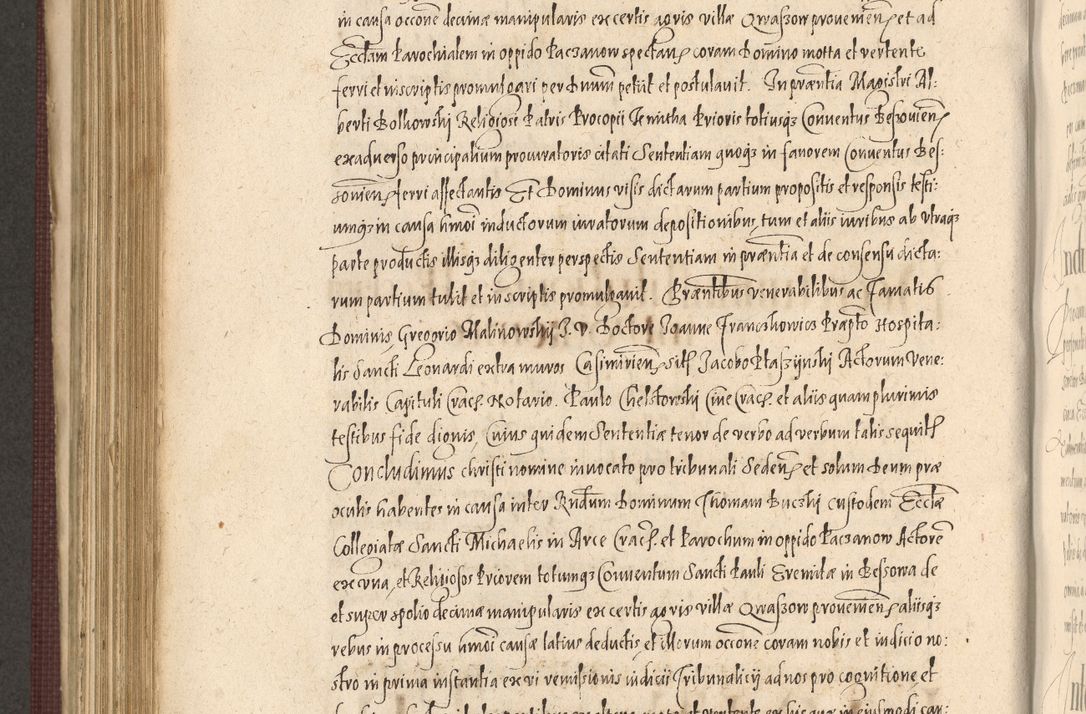 in causa occone decimæ manipularis ex certis agris villæ Qwaszow provenien et ad
Ecctam Parochialem in oppido Paczanow spectan coram Domino motta et vertente
ferri et in scriptis promulgari per Dnum petiit et postulavit. In præntia Magistri Al:
berti Bolkowski Religiosi Patris Procopii Prioris totiusq Conventus Beszovien
ex adverso principalium procuratoris citati Sententiam quoq in favorem Conventus Bes:
zovien ferri affectantis Et Dominus visis dictarum partium propositis et responsis testi:
umq in causa hmoi inductorum iuratorum depositionibus, tum et aliis iuribus ab utraq
parte productis illisq diligenter perspectis Sententiam in præntia et de consensu dicta:
rum partium tulit et in scriptis promulgavit. Præntibus venerabilibus ac famatis
Dominis Gregorio Malinowskij I. V. Doctore Ioanne Franczkowicz Præpto Hospita:
lis Sancti Leonardi extra muros Casimirien Jacobo Actorum Vene:
rabilis Capituli Crac Notario. Paulo Chelstowski Cive Crac et aliis quam plurimis
testibus fide dignis, Cuius quidem Sententiæ tenor de verbo ad verbum talis sequit
Concludimus christi nomine invocato pro tribunali Seden et solum Deum præ
oculis habentes in causa inter Rndum Dominum Thomam Buczki Custodem Ecctæ
Collegiatæ Sancti Michaelis in Arce Crac et Parochum in oppido Paczanow Actore
ex una, et Religiosos Priorem totumq Conventum Sancti Pauli Eremitæ in Bessowa de
et super spolio decimæ manipularis ex certis agris villæ Qwaszow provenien aliisq
rebus in processu hmoi causæ latius deductis et illorum occone coram nobis et iudicio no:
stro in prima instantia ex vi remissionis iudicii Tribunalicij ad nos pro cognitione et